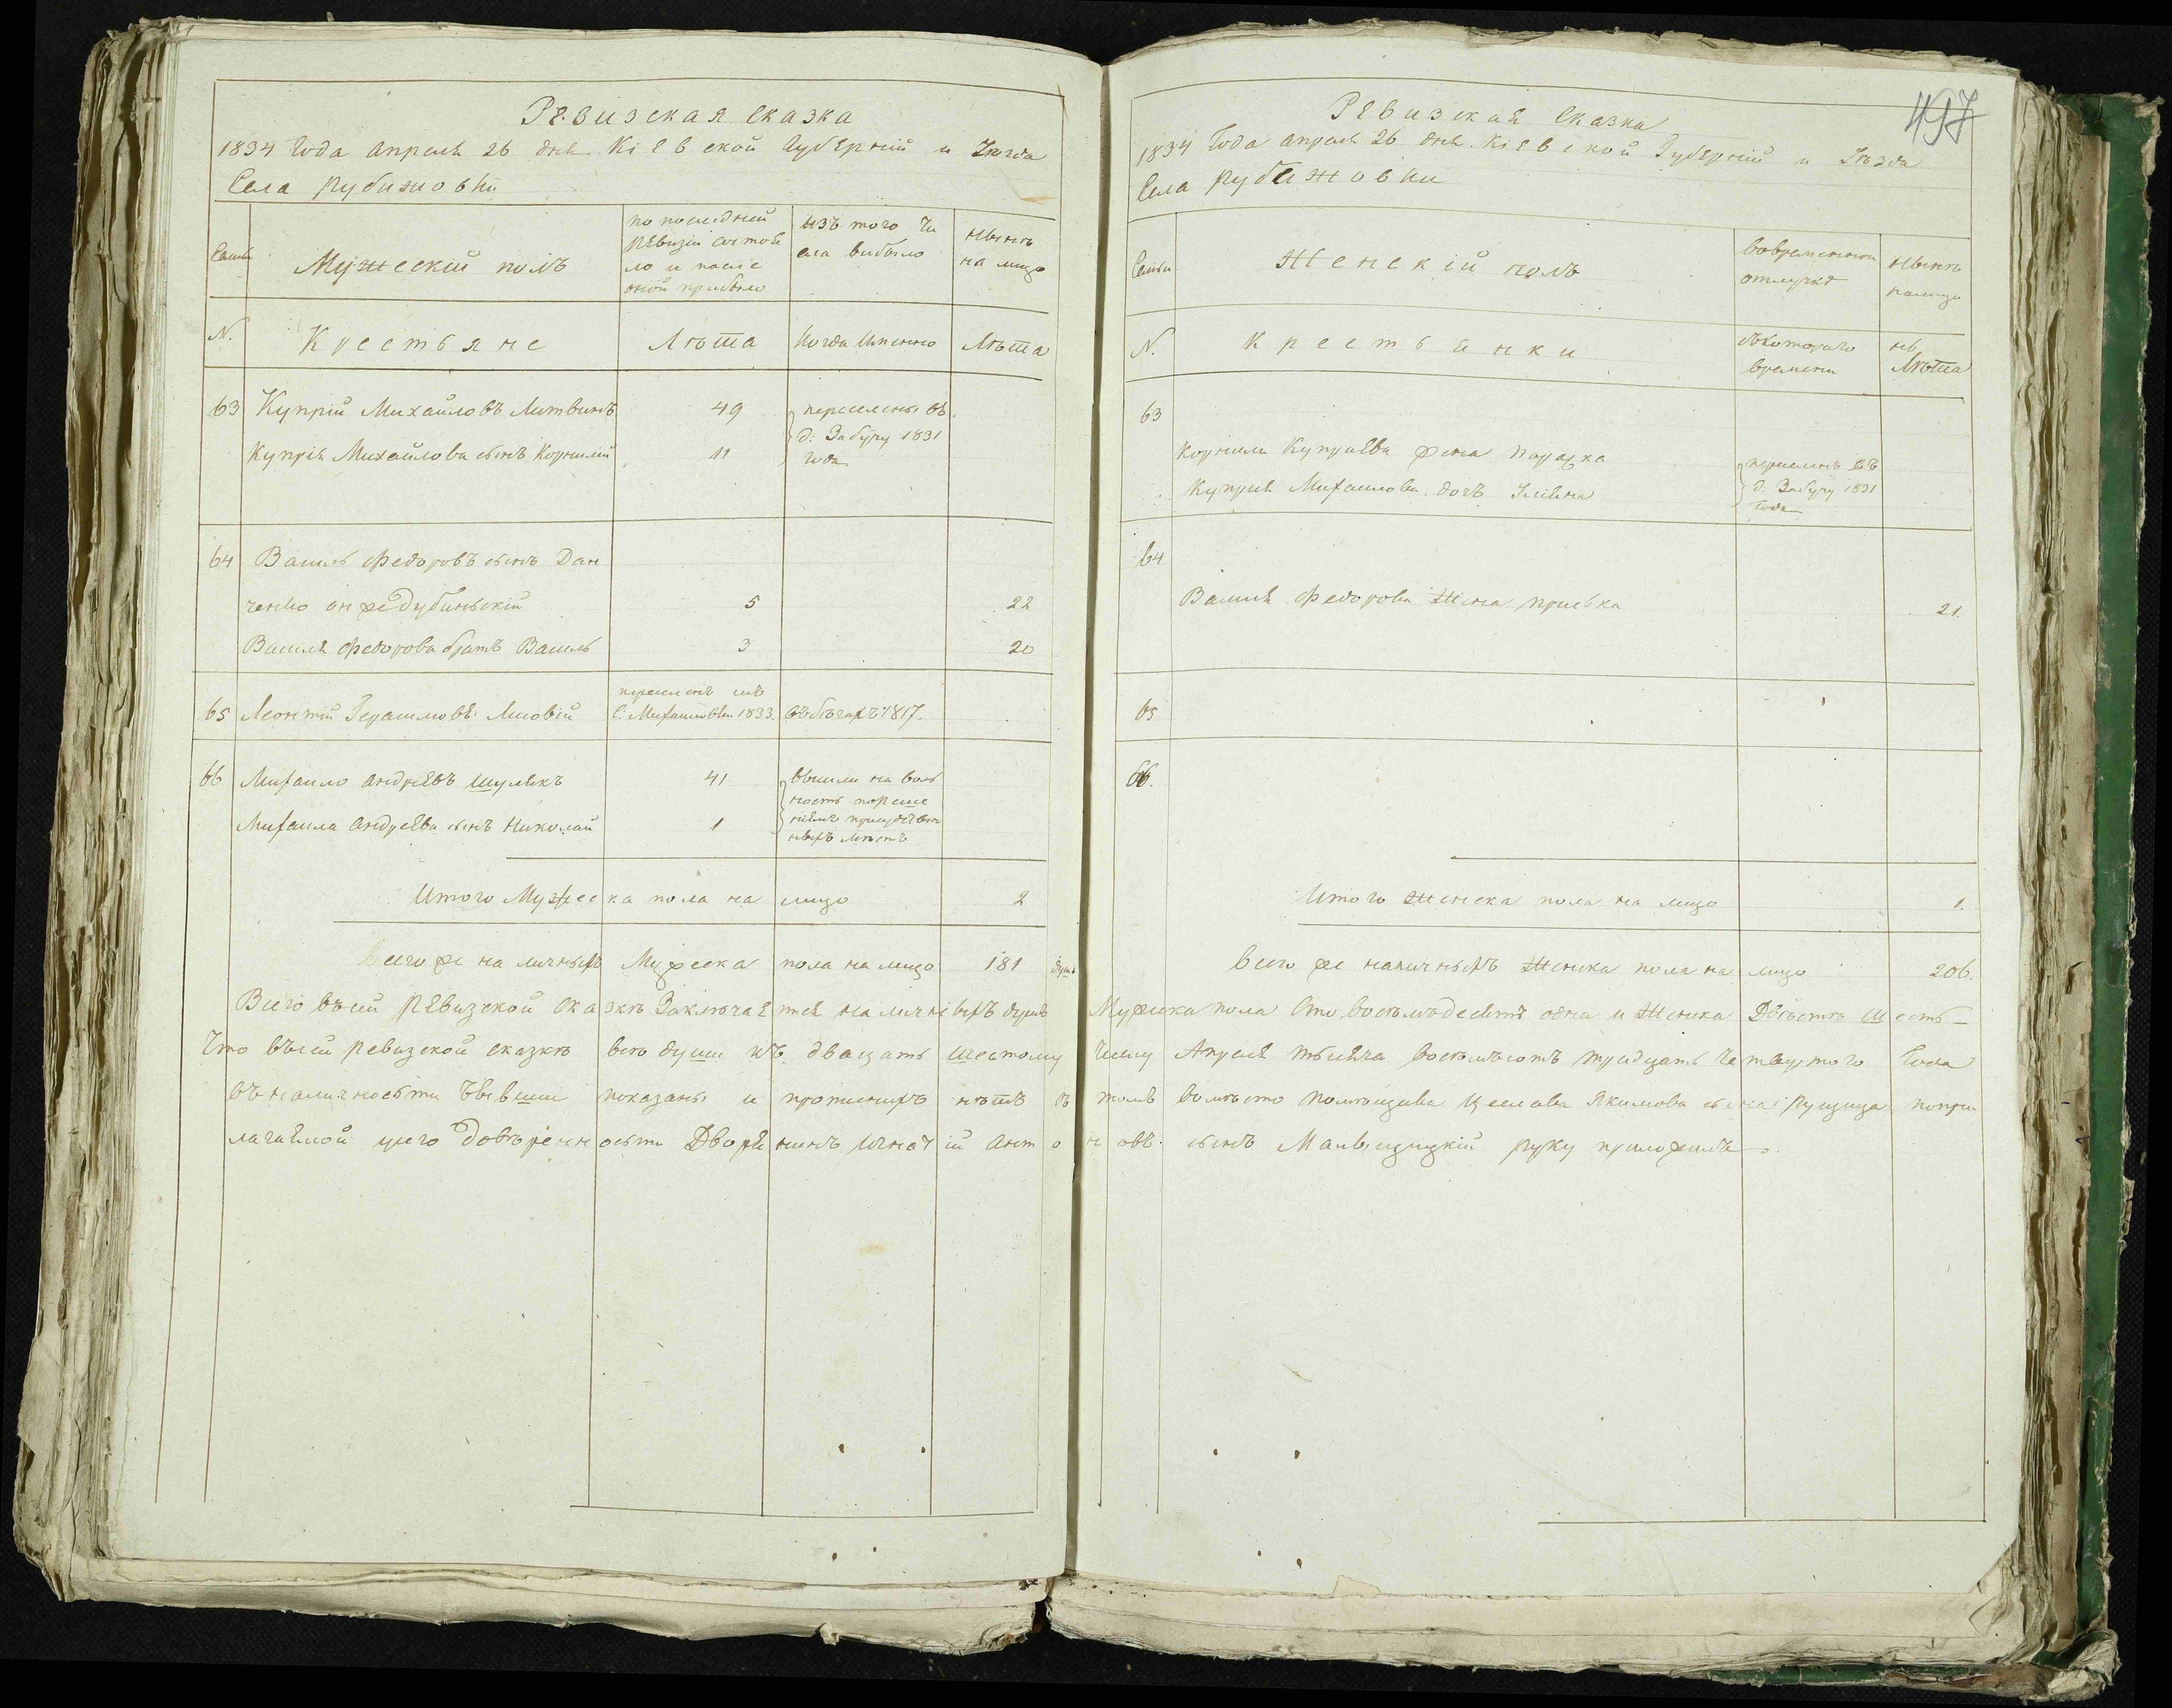 Ревизская сказка
1834 Года Апреля 26 дня Кіевской Губерніи и Уезда
Села Рубижовки
Семьи
Мужескій полъ
по последней
Ревизіи состоя
ло и после
оной прибыло
Изъ того чи
сла выбыло
Ныне
на лицо
N.
Крестьяне
Лѣта
Когда Именно
Лѣта
63 Купрій Михайловъ Литвинъ 49
переселены въ
д: Забучу 1831
года
Купрія Михайлова сынъ Корнилій 11
64 Василь Федоровъ сынъ Дан
ченко онже Дубинскій 5 22
Василя Федорова братъ Василь 3 20
65 Леонтій Герасимовъ Лисовій
переселенъ изъ
с: Михайловки 1833.
въ бѣгахъ 1817.
66 Михаило Андреевъ Шулякъ 41
Михаила Андреева сынъ Николай 1
вышли на воль
ность пореше
ніямъ присудствен
ныхъ мѣстъ
Итого Мужеска пола на лицо 2
Всего же наличныхъ Мужеска пола на лицо 181 душъ
497
Ревизская Сказка
1834 Года Апреля 26 дня Кіевской Губерніи и Уезда
Села Рубижовки
Семьи
Женскій полъ
Вовременной
отлучке
Ныне
налицо
N.
Крестьянки
съкотораго
времени
Лѣта
63
Корнила Купріева жена Параска
Купрія Михаилова дочь Уліяна
переселены въ
д: Забучу 1831
Года
64
Василя Федорова Жена Приська 21.
65
66.
Итого Женска пола на лицо 1.
Всего же наличныхъ Женска пола на лицо 206.
Всего въсей Ревизской Сказкѣ Заключается наличныхъ душъ Мужеска пола Сто восемьдесятъ одна и Женска Двѣстѣ Шесть
Что въсей ревизской сказкѣ все души къ двацать шестому числу Апреля тысяча восемьсотъ тридцать Четвертого Года
въ наличносьти бывшие показаны и прописныхъ нѣтъ въ томъ вомѣсто Помѣщика Якимова сына Рущица попри
лагаемой унего Довѣренносьти Дворянинъ Игнатій Антоновъ сынъ руку приложилъ.